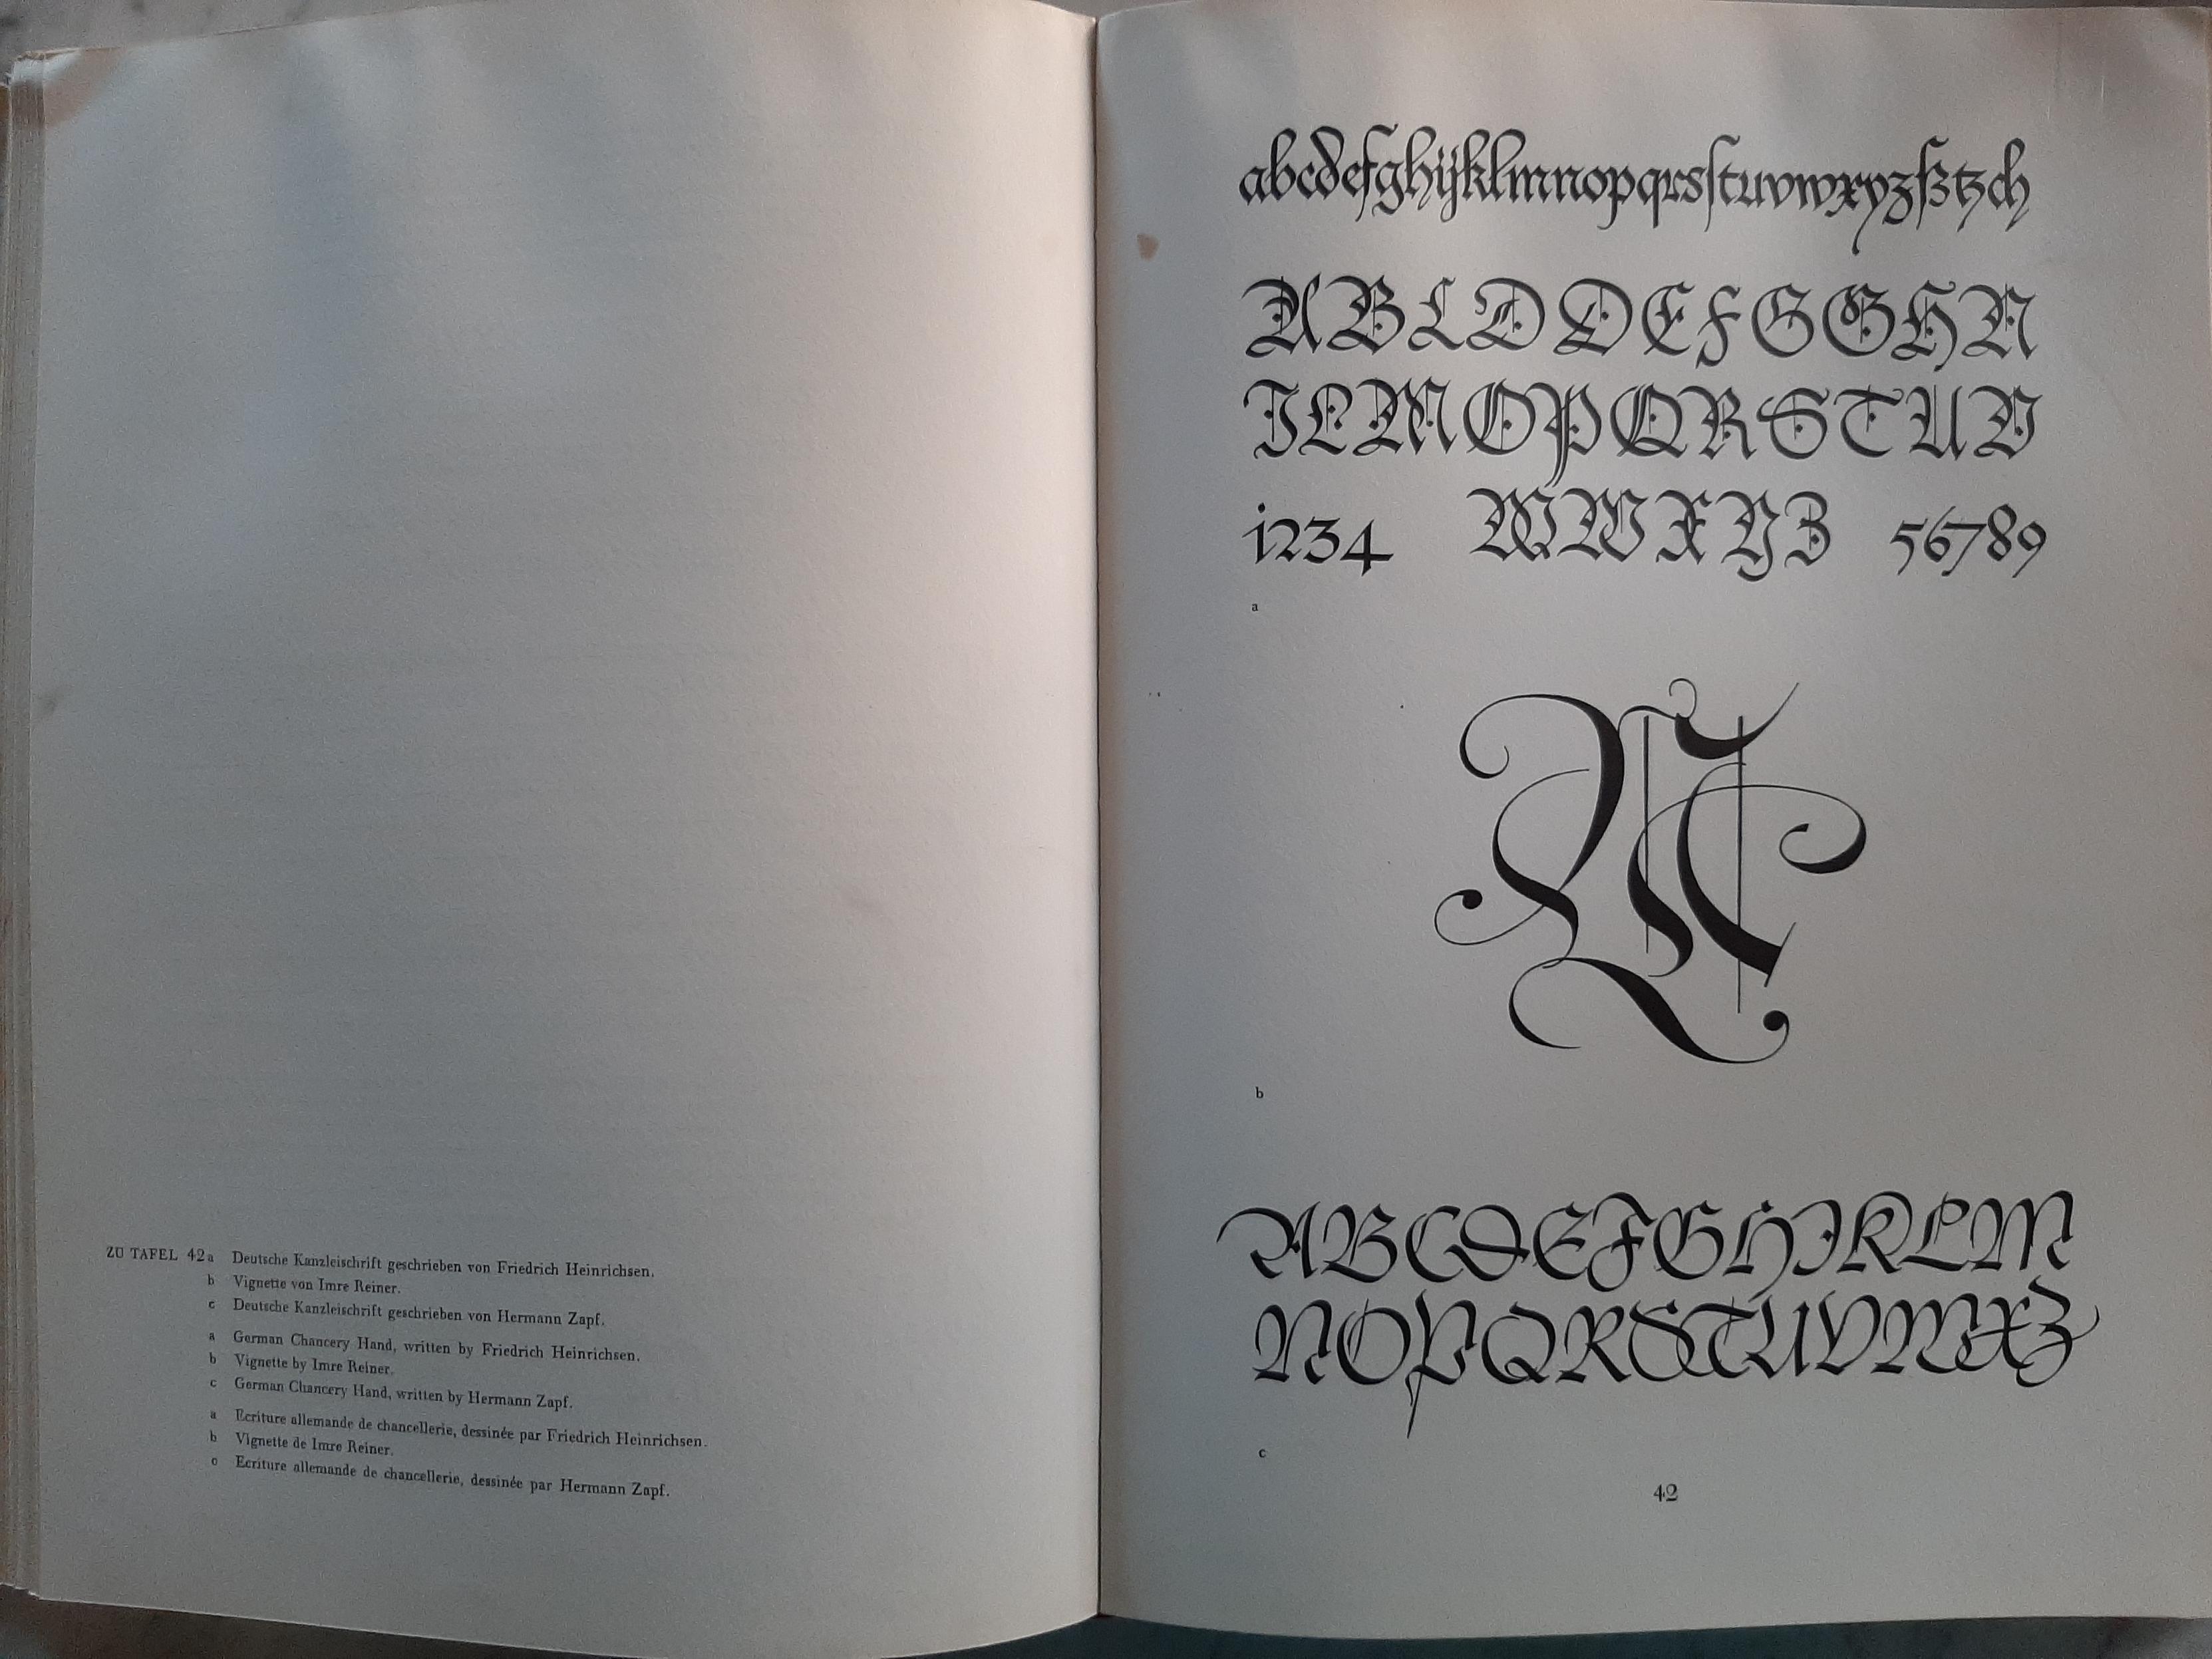 ZU TAFEL 42 a Deutsche Kanzleischrift geschrieben von Friedrich Heinrichsen.
b Vignette von Imre Reiner.
c Deutsche Kanzleischrift geschrieben von Hermann Zapf.
a German Chancery Hand, written by Friedrich Heinrichsen.
b Vignette by Imre Reiner.
c German Chancery Hand, written by Hermann Zapf.
a Ecriture allemande de chancellerie, dessinée par Friedrich Heinrichsen.
b Vignette de Imre Reiner.
c Ecriture allemande de chancellerie, dessinée par Hermann Zapf.
abcdefghijklmnopqrsſtuvwxyzßtzch
ABCDDEFGGHN
JLMOPQRSTUV
1234 WWXYZ 56789
a
b
ABCDEFGHIKLM
NOPQRSTUVWXZ
c
42